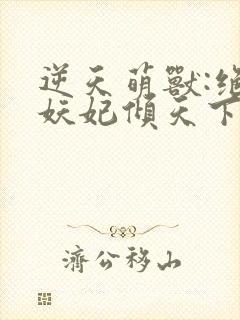 逆天萌獸:絕
妖妃傾天下
濟公移山